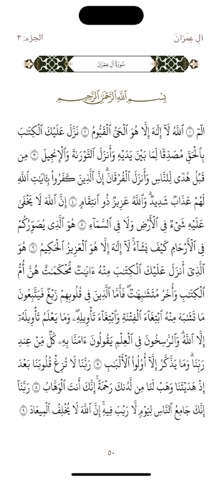 آل عِمْرَان الجزء: ٣
سُورَةُ آلِ عِمْرَانَ
بِسْمِ اللَّهِ الرَّحْمَٰنِ الرَّحِيمِ
الٓمٓ ۝١ ٱللَّهُ لَآ إِلَٰهَ إِلَّا هُوَ ٱلْحَىُّ ٱلْقَيُّومُ ۝٢ نَزَّلَ عَلَيْكَ ٱلْكِتَٰبَ
بِٱلْحَقِّ مُصَدِّقًا لِّمَا بَيْنَ يَدَيْهِ وَأَنزَلَ ٱلتَّوْرَىٰةَ وَٱلْإِنجِيلَ ۝٣ مِن
قَبْلُ هُدًى لِّلنَّاسِ وَأَنزَلَ ٱلْفُرْقَانَ ۗ إِنَّ ٱلَّذِينَ كَفَرُوا۟ بِـَٔايَٰتِ ٱللَّهِ
لَهُمْ عَذَابٌ شَدِيدٌ ۗ وَٱللَّهُ عَزِيزٌ ذُو ٱنتِقَامٍ ۝٤ إِنَّ ٱللَّهَ لَا يَخْفَىٰ
عَلَيْهِ شَىْءٌ فِى ٱلْأَرْضِ وَلَا فِى ٱلسَّمَآءِ ۝٥ هُوَ ٱلَّذِى يُصَوِّرُكُمْ
فِى ٱلْأَرْحَامِ كَيْفَ يَشَآءُ ۚ لَآ إِلَٰهَ إِلَّا هُوَ ٱلْعَزِيزُ ٱلْحَكِيمُ ۝٦ هُوَ
ٱلَّذِىٓ أَنزَلَ عَلَيْكَ ٱلْكِتَٰبَ مِنْهُ ءَايَٰتٌ مُّحْكَمَٰتٌ هُنَّ أُمُّ
ٱلْكِتَٰبِ وَأُخَرُ مُتَشَٰبِهَٰتٌ ۖ فَأَمَّا ٱلَّذِينَ فِى قُلُوبِهِمْ زَيْغٌ فَيَتَّبِعُونَ
مَا تَشَٰبَهَ مِنْهُ ٱبْتِغَآءَ ٱلْفِتْنَةِ وَٱبْتِغَآءَ تَأْوِيلِهِۦ ۗ وَمَا يَعْلَمُ تَأْوِيلَهُۥٓ
إِلَّا ٱللَّهُ ۗ وَٱلرَّٰسِخُونَ فِى ٱلْعِلْمِ يَقُولُونَ ءَامَنَّا بِهِۦ كُلٌّ مِّنْ عِندِ
رَبِّنَا ۗ وَمَا يَذَّكَّرُ إِلَّآ أُو۟لُوا۟ ٱلْأَلْبَٰبِ ۝٧ رَبَّنَا لَا تُزِغْ قُلُوبَنَا بَعْدَ
إِذْ هَدَيْتَنَا وَهَبْ لَنَا مِن لَّدُنكَ رَحْمَةً ۚ إِنَّكَ أَنتَ ٱلْوَهَّابُ ۝٨ رَبَّنَآ
إِنَّكَ جَامِعُ ٱلنَّاسِ لِيَوْمٍ لَّا رَيْبَ فِيهِ ۚ إِنَّ ٱللَّهَ لَا يُخْلِفُ ٱلْمِيعَادَ ۝٩
٥٠